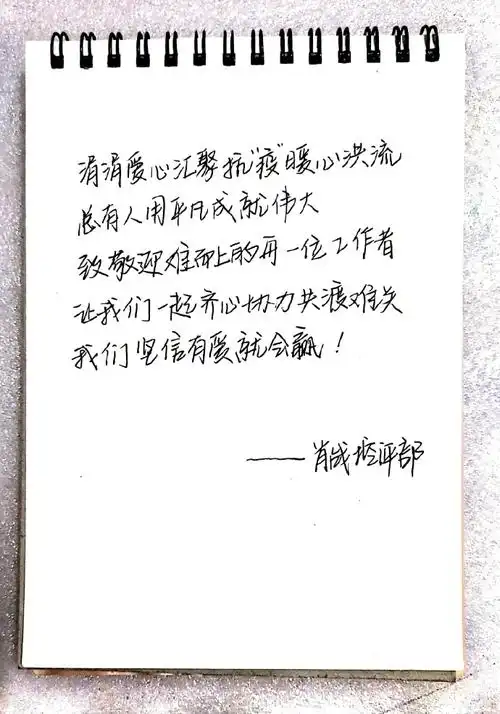 涓涓爱心汇聚抗“疫”暖心洪流
总有人用平凡成就伟大
致敬迎难而上的再一位工作者
让我们一起齐心协力共渡难关
我们坚信有爱就会赢！
——肖战控评部